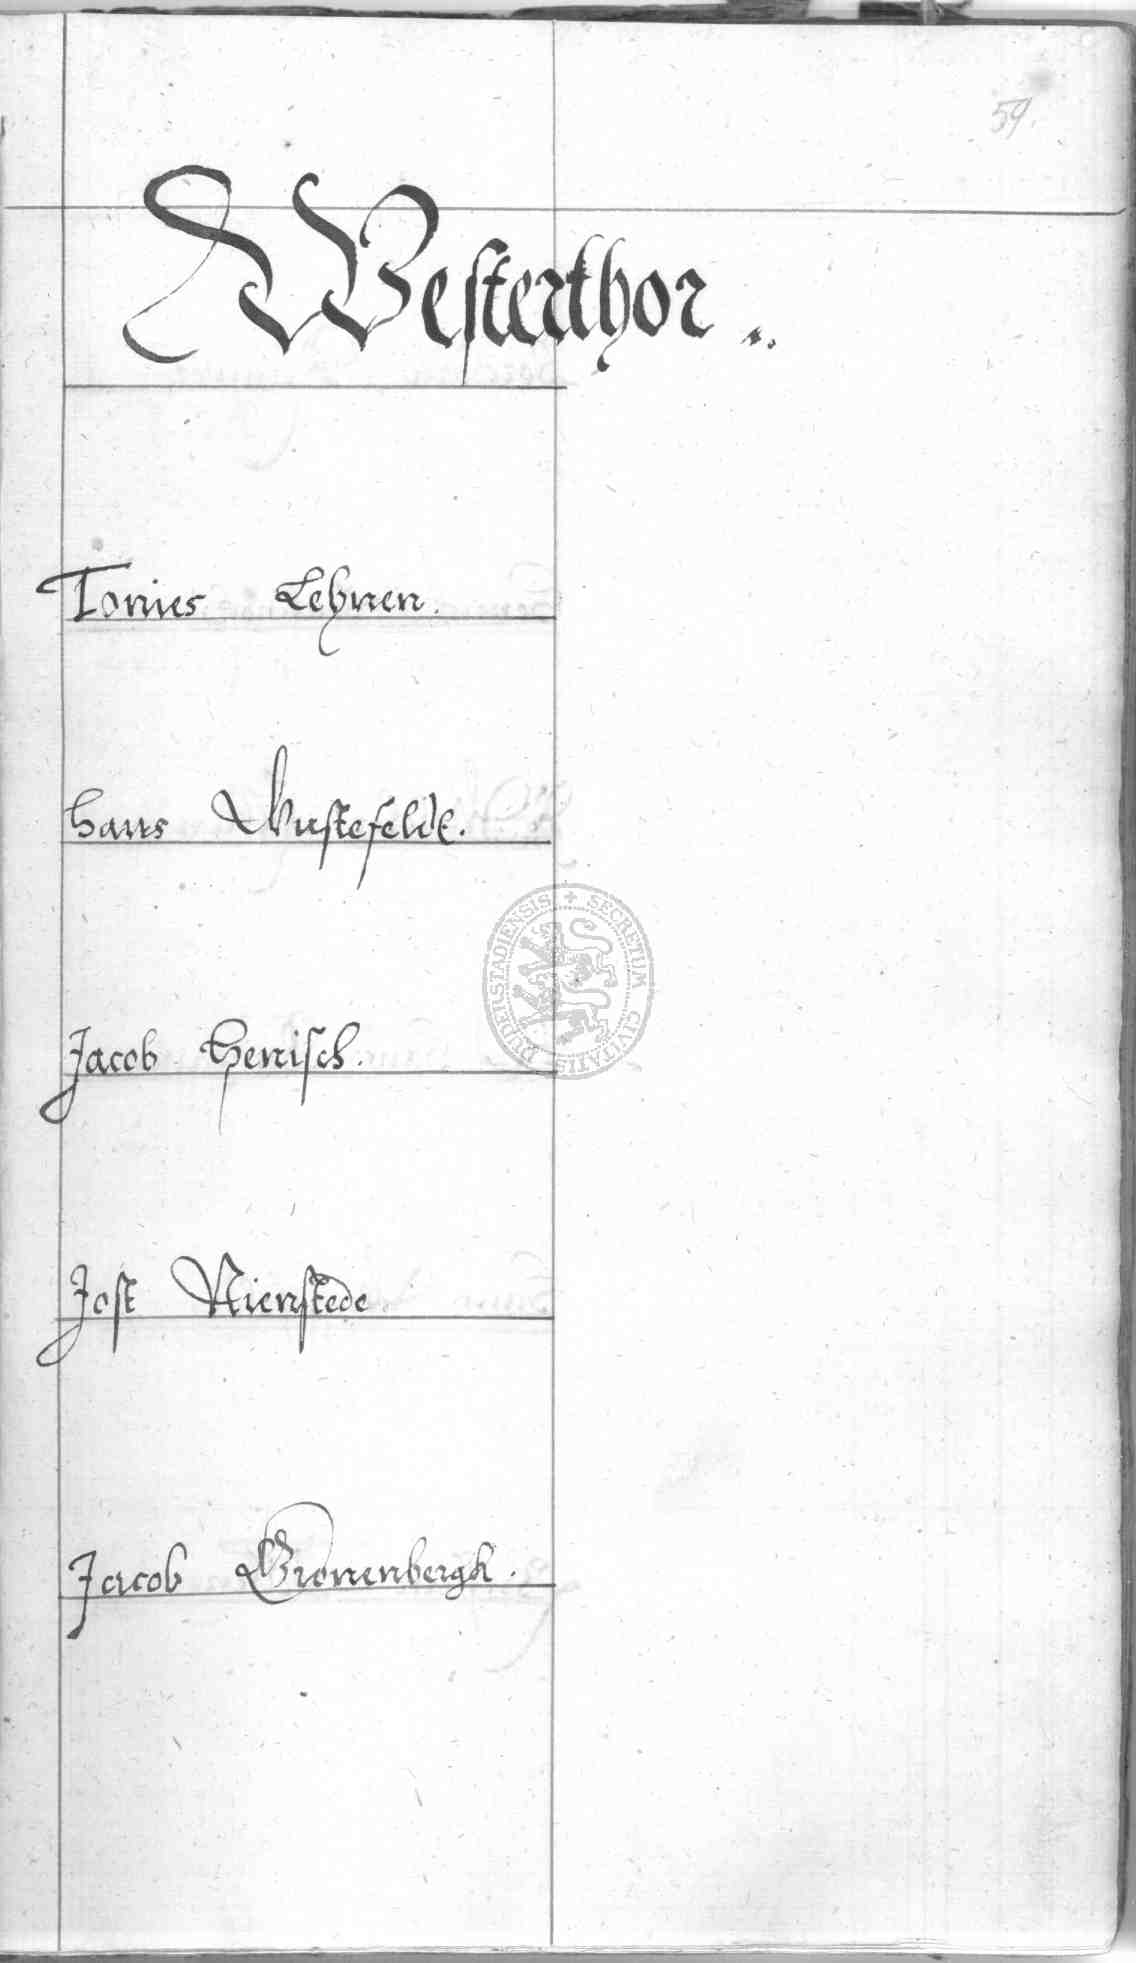 59.
Westerthor..
Tonies Lehnen.
Hans Wustefeldt.
Jacob Henisch.
Jost Nienstede
Jacob Gronenbergk.
+ SECRETUM CIVITATIS DUDERSTADIENSIS